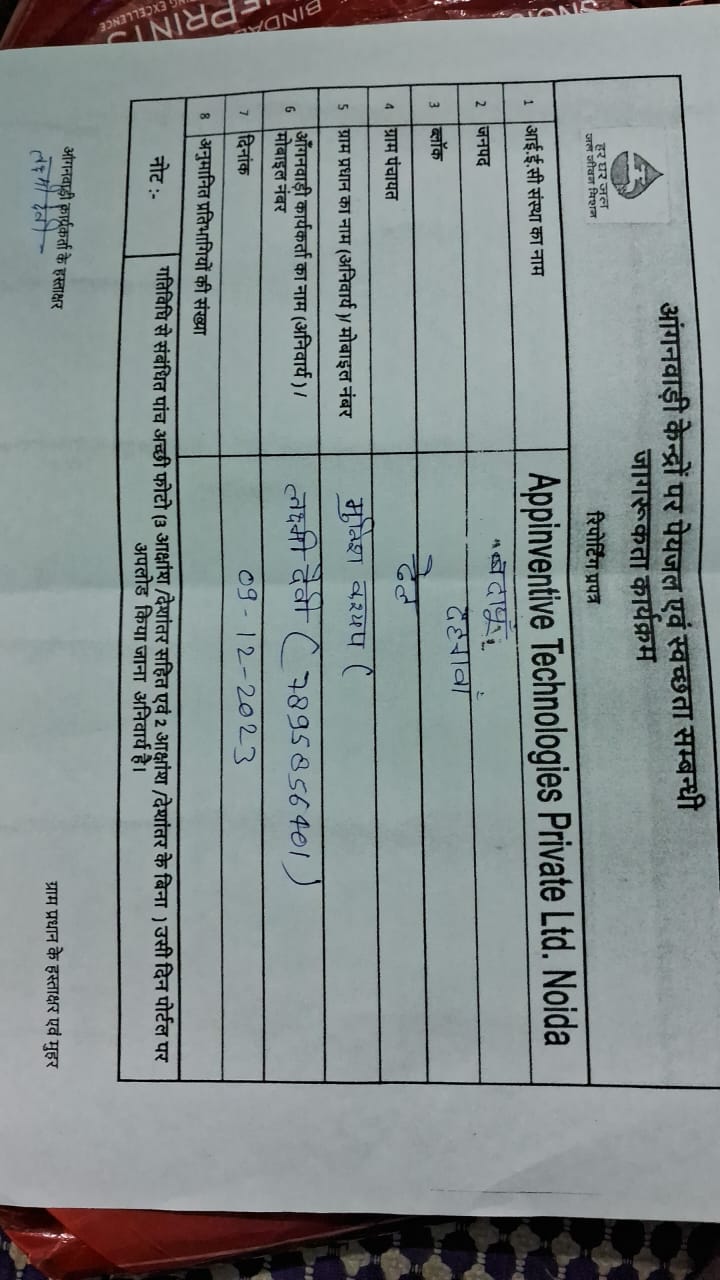 आंगनवाड़ी केन्द्रों पर पेयजल एवं स्वच्छता सम्बन्धी
जागरूकता कार्यक्रम
हर घर जल
जल जीवन मिशन
रिपोर्टिंग प्रपत्र
1 आई.ई.सी संस्था का नाम Appinventive Technologies Private Ltd. Noida
2 जनपद बदायूं
3 ब्लॉक दहगवां
4 ग्राम पंचायत
5 ग्राम प्रधान का नाम (अनिवार्य )/ मोबाइल नंबर मुनिश कश्यप (
6 आँगनवाड़ी कार्यकर्ता का नाम (अनिवार्य ) /
मोबाइल नंबर लक्ष्मी देवी ( 7895856401 )
7 दिनांक 09-12-2023
8 अनुमानित प्रतिभागियों की संख्या
नोट :- गतिविधि से संबंधित पांच अच्छी फोटो (3 आक्षांश /देशांतर सहित एवं 2 आक्षांश /देशांतर के बिना ) उसी दिन पोर्टल पर
अपलोड किया जाना अनिवार्य है।
आंगनवाड़ी कार्यकर्ता के हस्ताक्षर
लक्ष्मी देवी
ग्राम प्रधान के हस्ताक्षर एवं मुहर
BINDA
EPRINTS
NG EXCELLENCE